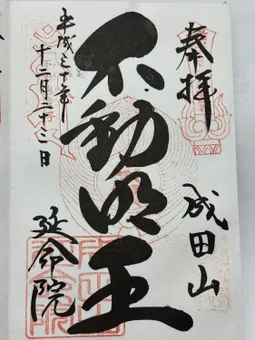 奉拝
成田山
不動明王
平成三十年
十二月二十三日
延命院